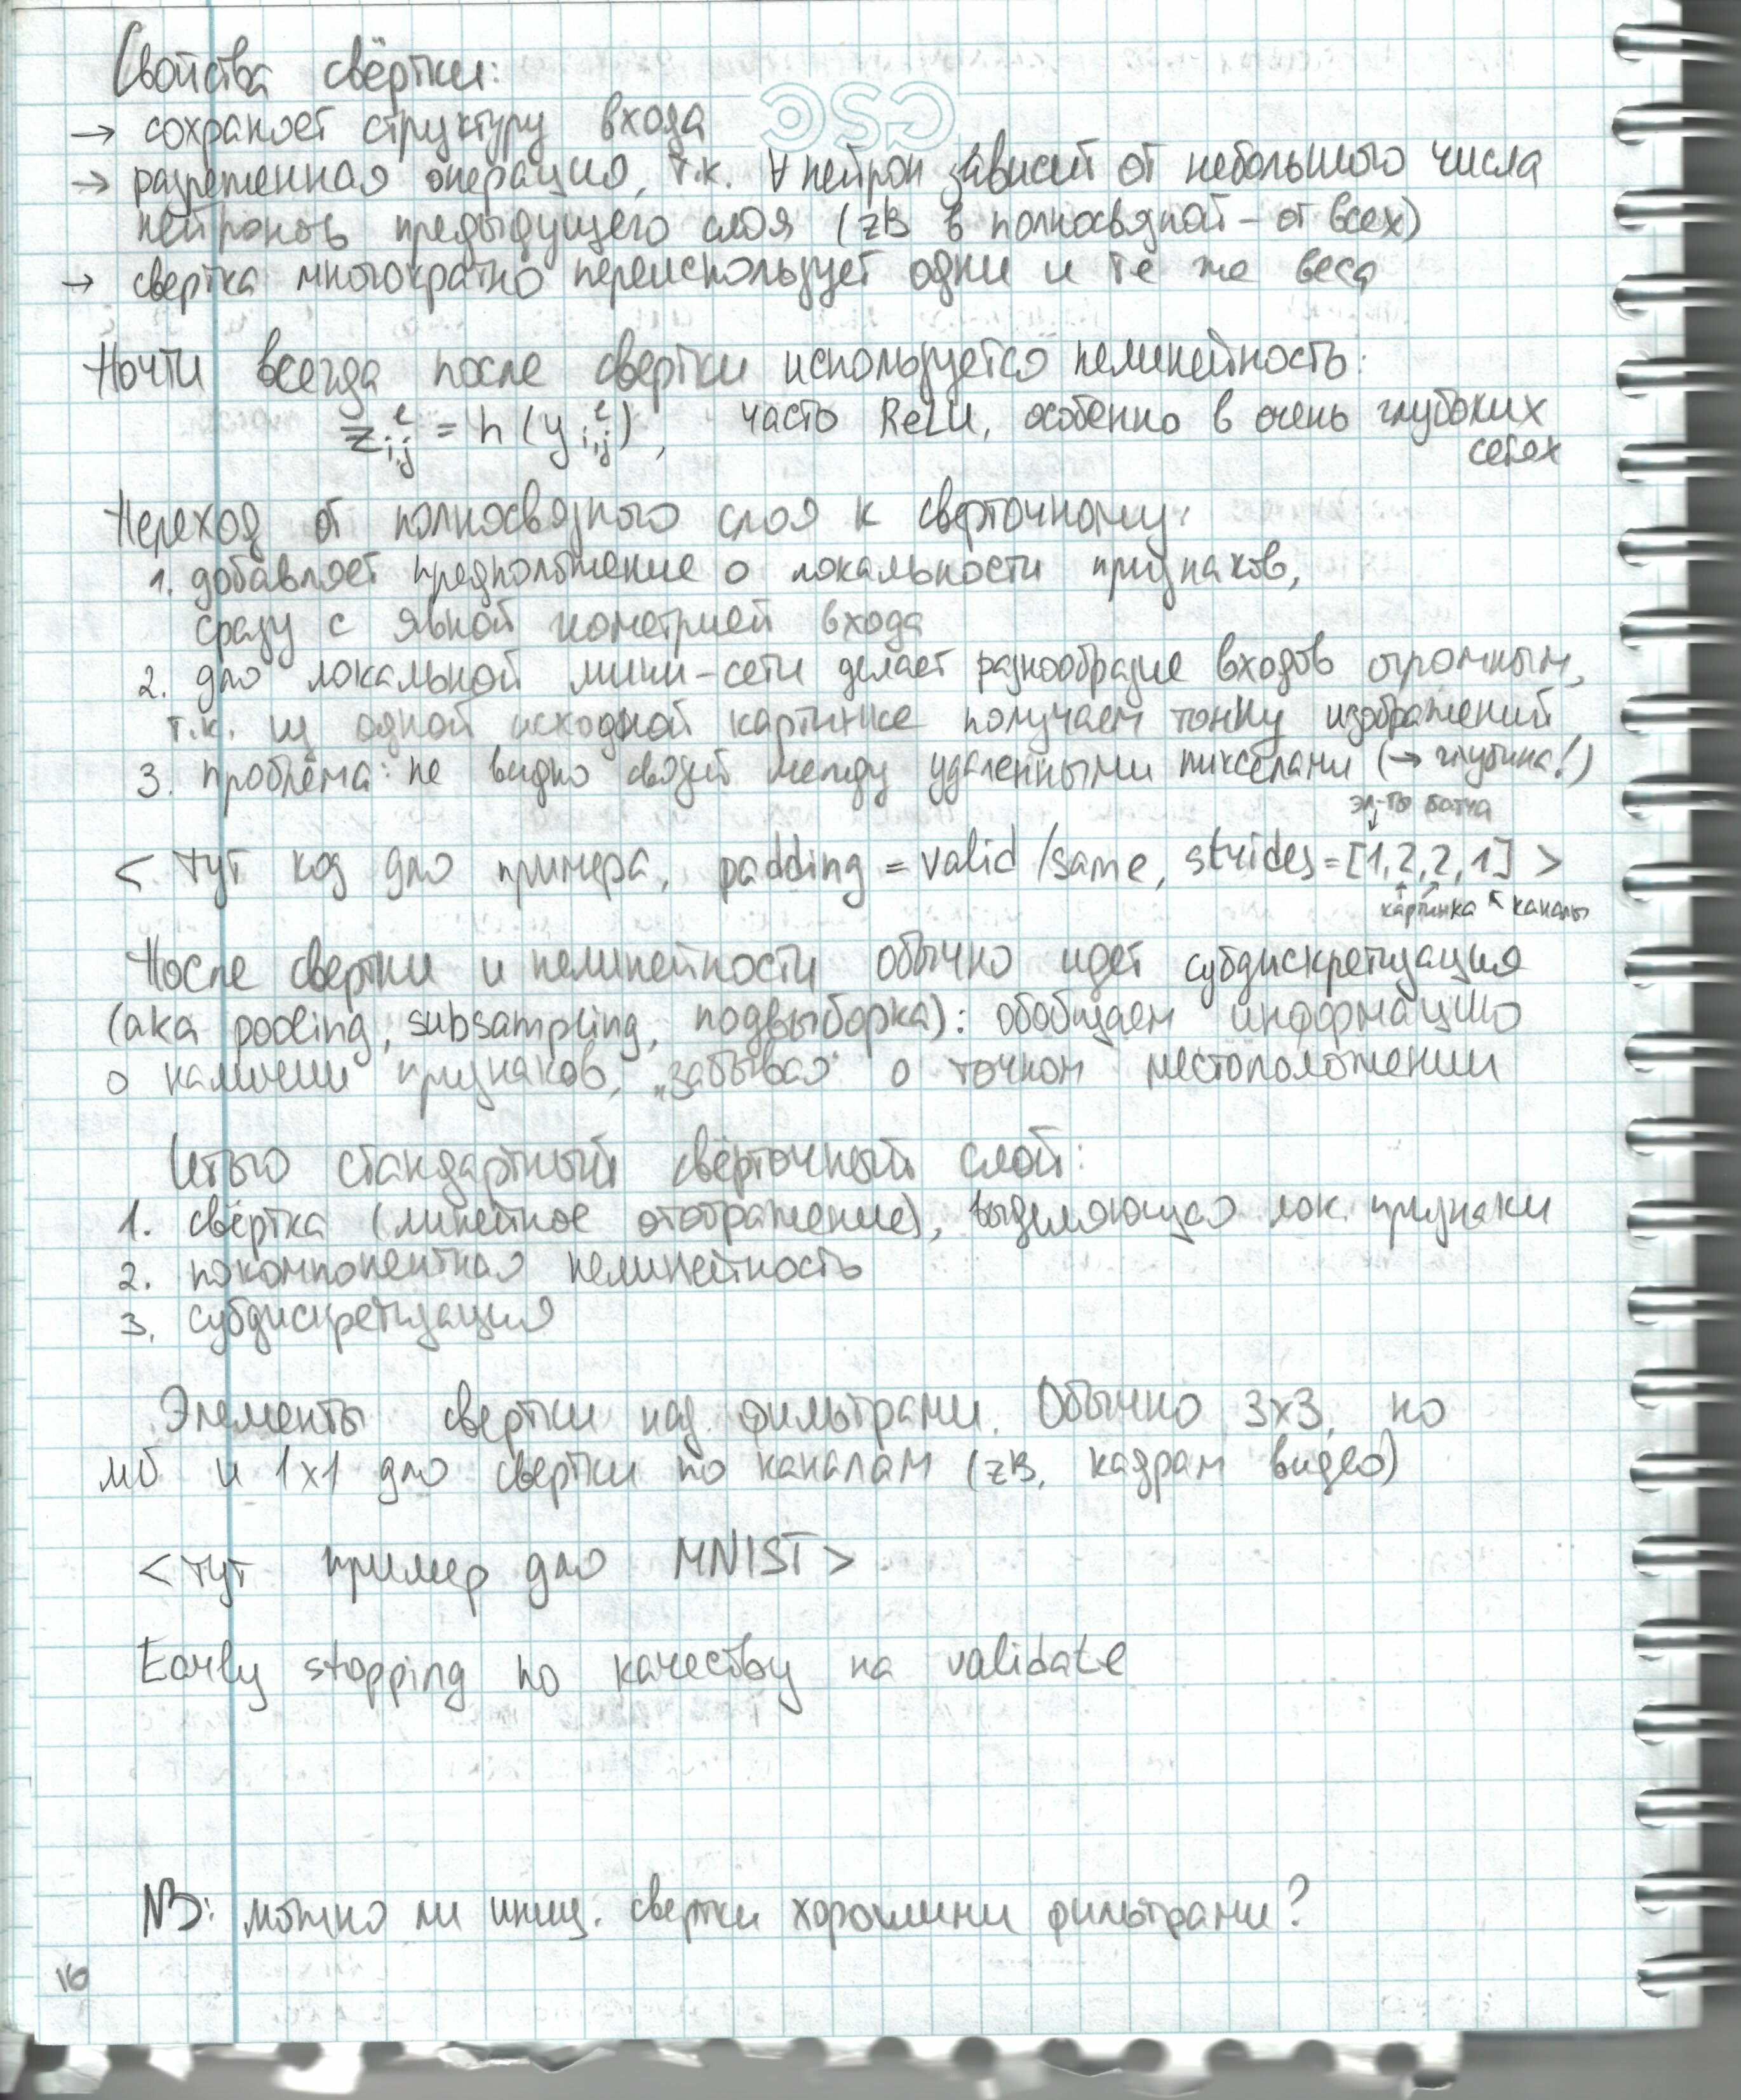 Свойства свёртки:
csc
→ сохраняет структуру входа
→ разреженная операция, т.к. ∀ нейрон зависит от небольшого числа
нейронов предыдущего слоя (zB в полносвязной – от всех)
→ свертка многократно переиспользует одни и те же веса
Почти всегда после свертки используется нелинейность:
z^l_{i,j} = h(y^l_{i,j}), часто ReLU, особенно в очень глубоких
сетях
Переход от полносвязного слоя к сверточному:
1. добавляет предположение о локальности признаков,
сразу с явной геометрией входа
2. для локальной мини-сети делает разнообразие входов огромным,
т.к. из одной исходной картинке получаем тонну изображений
3. проблема: не видно связей между удаленными пикселами (→ глубина!)
эл-ты батча
< тут код для примера, padding = valid/same, strides=[1,2,2,1] >
картинка каналы
После свертки и нелинейности обычно идет субдискретизация
(aka pooling, subsampling, подвыборка): обобщаем информацию
о наличии признаков, „забывая" о точном местоположении
Итого стандартный свёрточный слой:
1. свёртка (линейное отображение), выделяющая лок. признаки
2. покомпонентная нелинейность
3. субдискретизация
Элементы свертки наз. фильтрами. Обычно 3x3, но
мб и 1x1 для свертки по каналам (zB, кадрам видео)
<тут пример для MNIST>
Early stopping по качеству на validate
NB: можно ли иниц. свертки хорошими фильтрами?
16